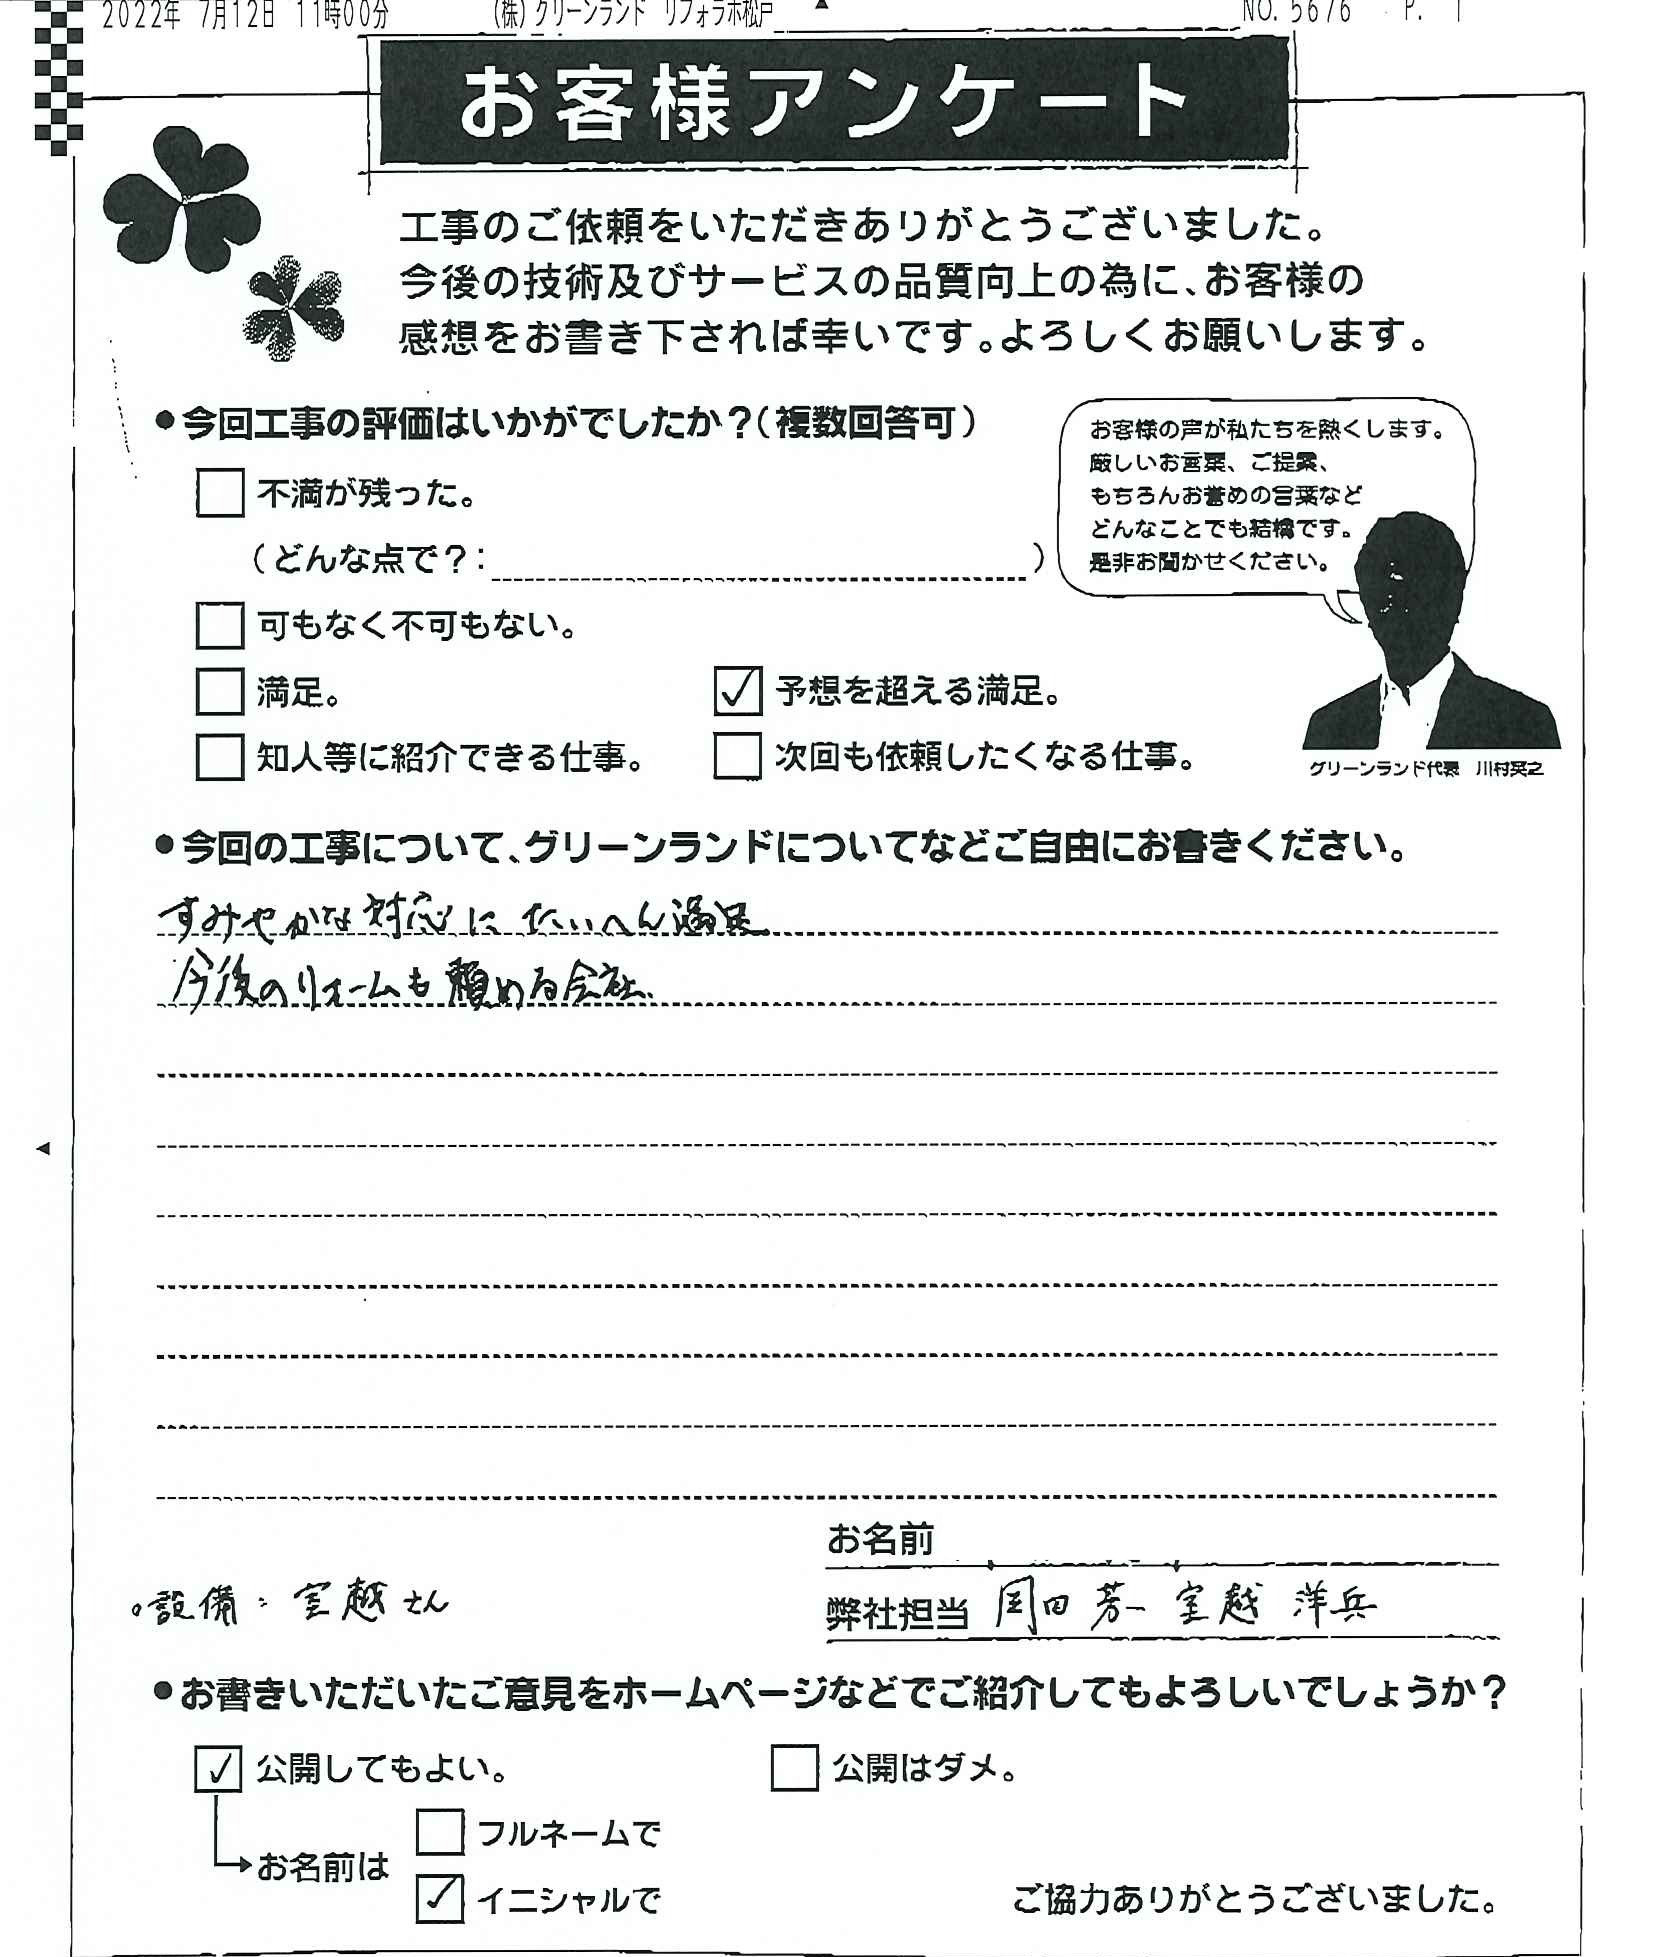 2022年 7月12日 11時00分 (株)グリーンランド リフォラボ松戸 NO. 5676 P. 1
お客様アンケート
工事のご依頼をいただきありがとうございました。
今後の技術及びサービスの品質向上の為に、お客様の
感想をお書き下されば幸いです。よろしくお願いします。
●今回工事の評価はいかがでしたか?(複数回答可)
不満が残った。
(どんな点で?: )
可もなく不可もない。
満足。
✓ 予想を超える満足。
知人等に紹介できる仕事。
次回も依頼したくなる仕事。
お客様の声が私たちを熱くします。
厳しいお言葉、ご提案、
もちろんお誉めの言葉など
どんなことでも結構です。
是非お聞かせください。
グリーンランド代表 川村英之
●今回の工事について、グリーンランドについてなどご自由にお書きください。
すみやかな対応に たいへん満足
今後のリフォームも頼める会社
お名前
。設備: 室越さん
弊社担当 岡田 芳一 室越 洋兵
●お書きいただいたご意見をホームページなどでご紹介してもよろしいでしょうか?
✓ 公開してもよい。
公開はダメ。
お名前は
フルネームで
✓ イニシャルで
ご協力ありがとうございました。